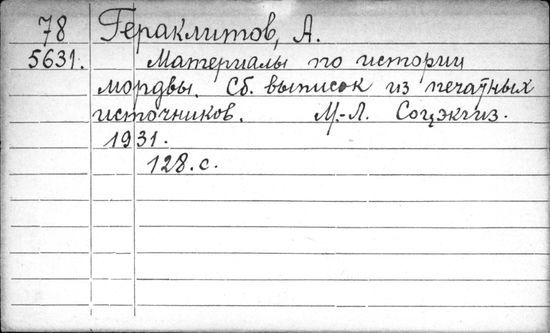 78 Гераклитов, А.
5631. Материалы по истории
мордвы. Сб. выписок из печатных
источников. М.-Л. Соцэкгиз.
1931.
128.с.